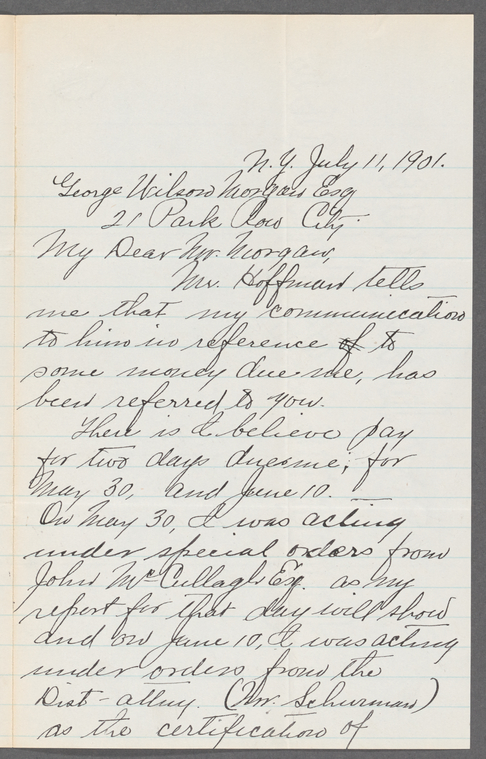 N.Y. July 11, 1901.
George Wilson Morgan Esq
21 Park Row City.
My Dear Mr. Morgan,
Mr. Hoffman tells
me that my communication
to him in reference of to
some money due me, has
been referred to you.
There is I believe pay
for two days due me, for
May 30, and June 10.
On May 30, I was acting
under special orders from
John McCullagh Esq. as my
report for that day will show
and on June 10, I was acting
under orders from the
Dist-attny. (Mr. Schurman)
as the certification of